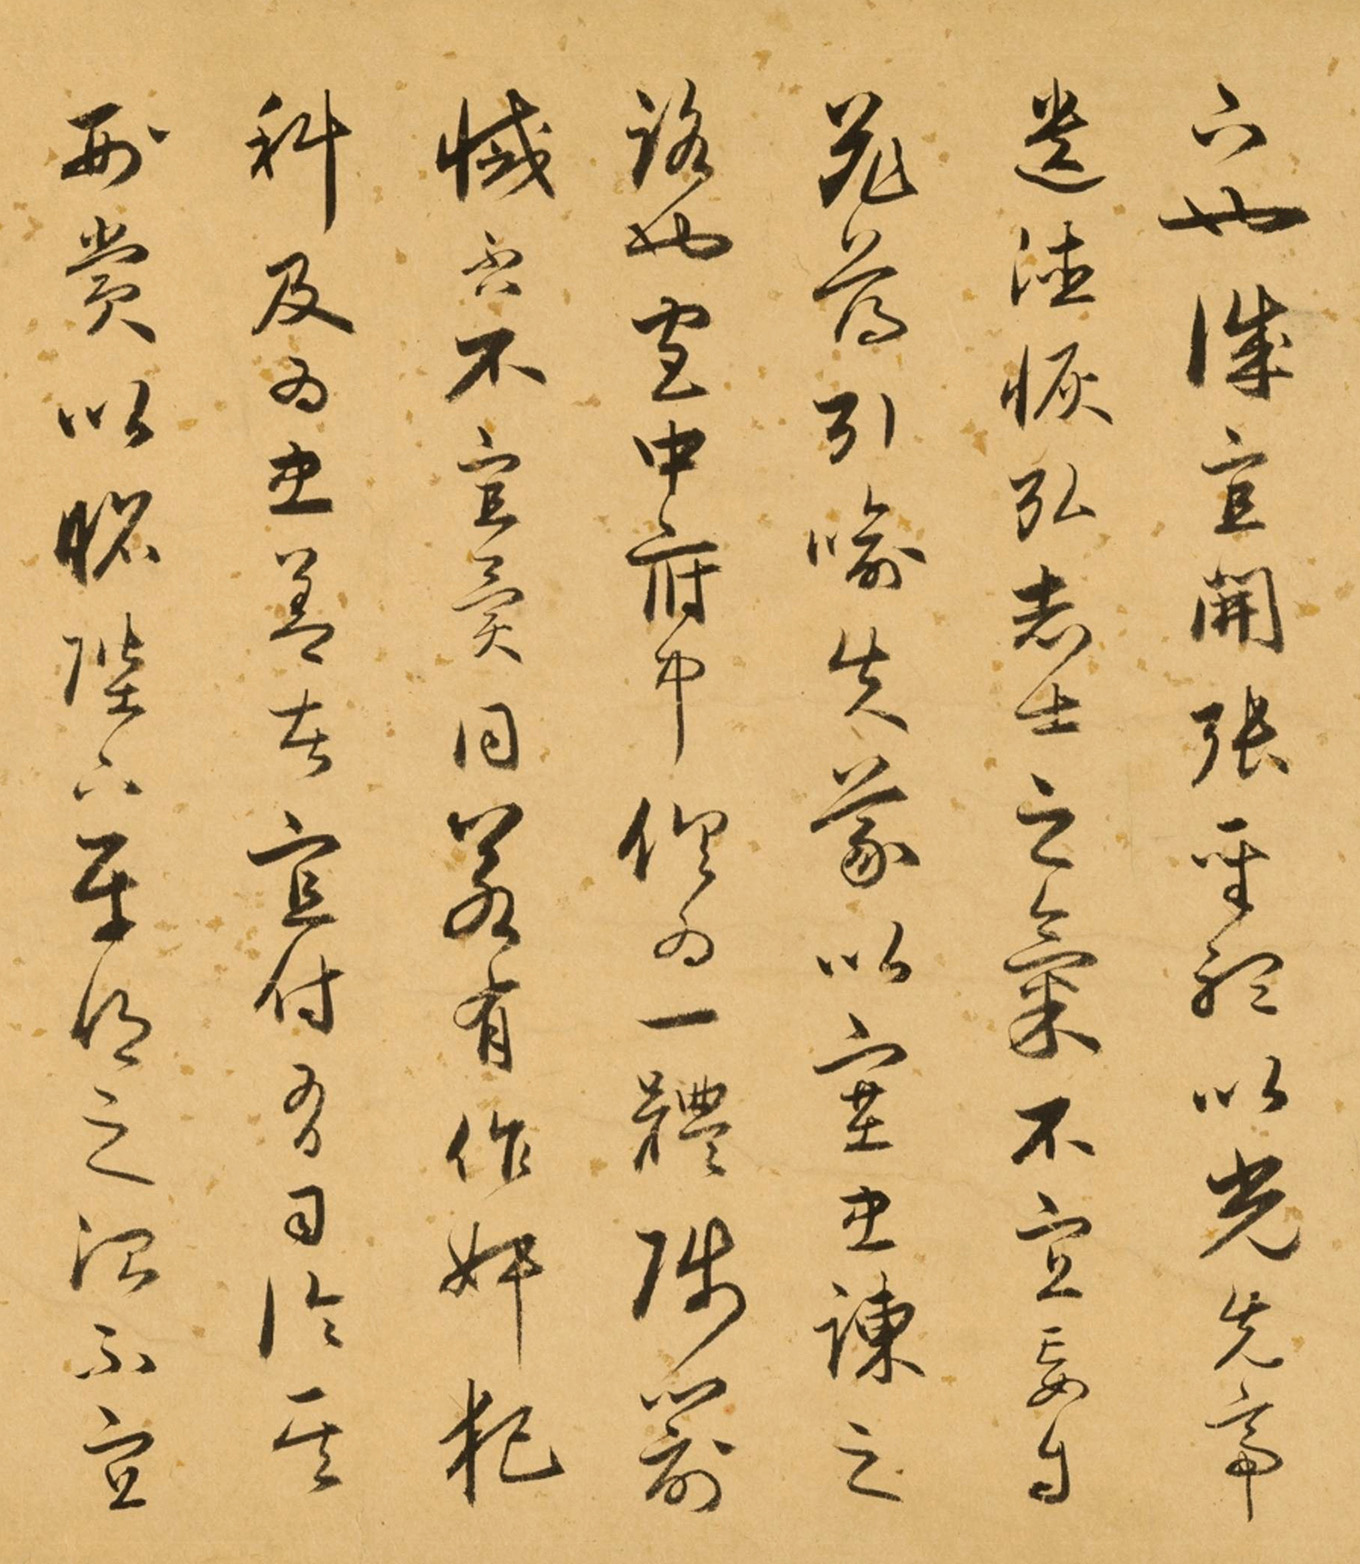 下也誠宜開張聖聽以光先帝
遺德恢弘志士之氣不宜妄自
菲薄引喻失義以塞忠諫之
路也宮中府中俱為一體陟罰
臧否不宜異同若有作奸犯
科及為忠善者宜付有司論其
刑賞以昭陛下平明之治不宜